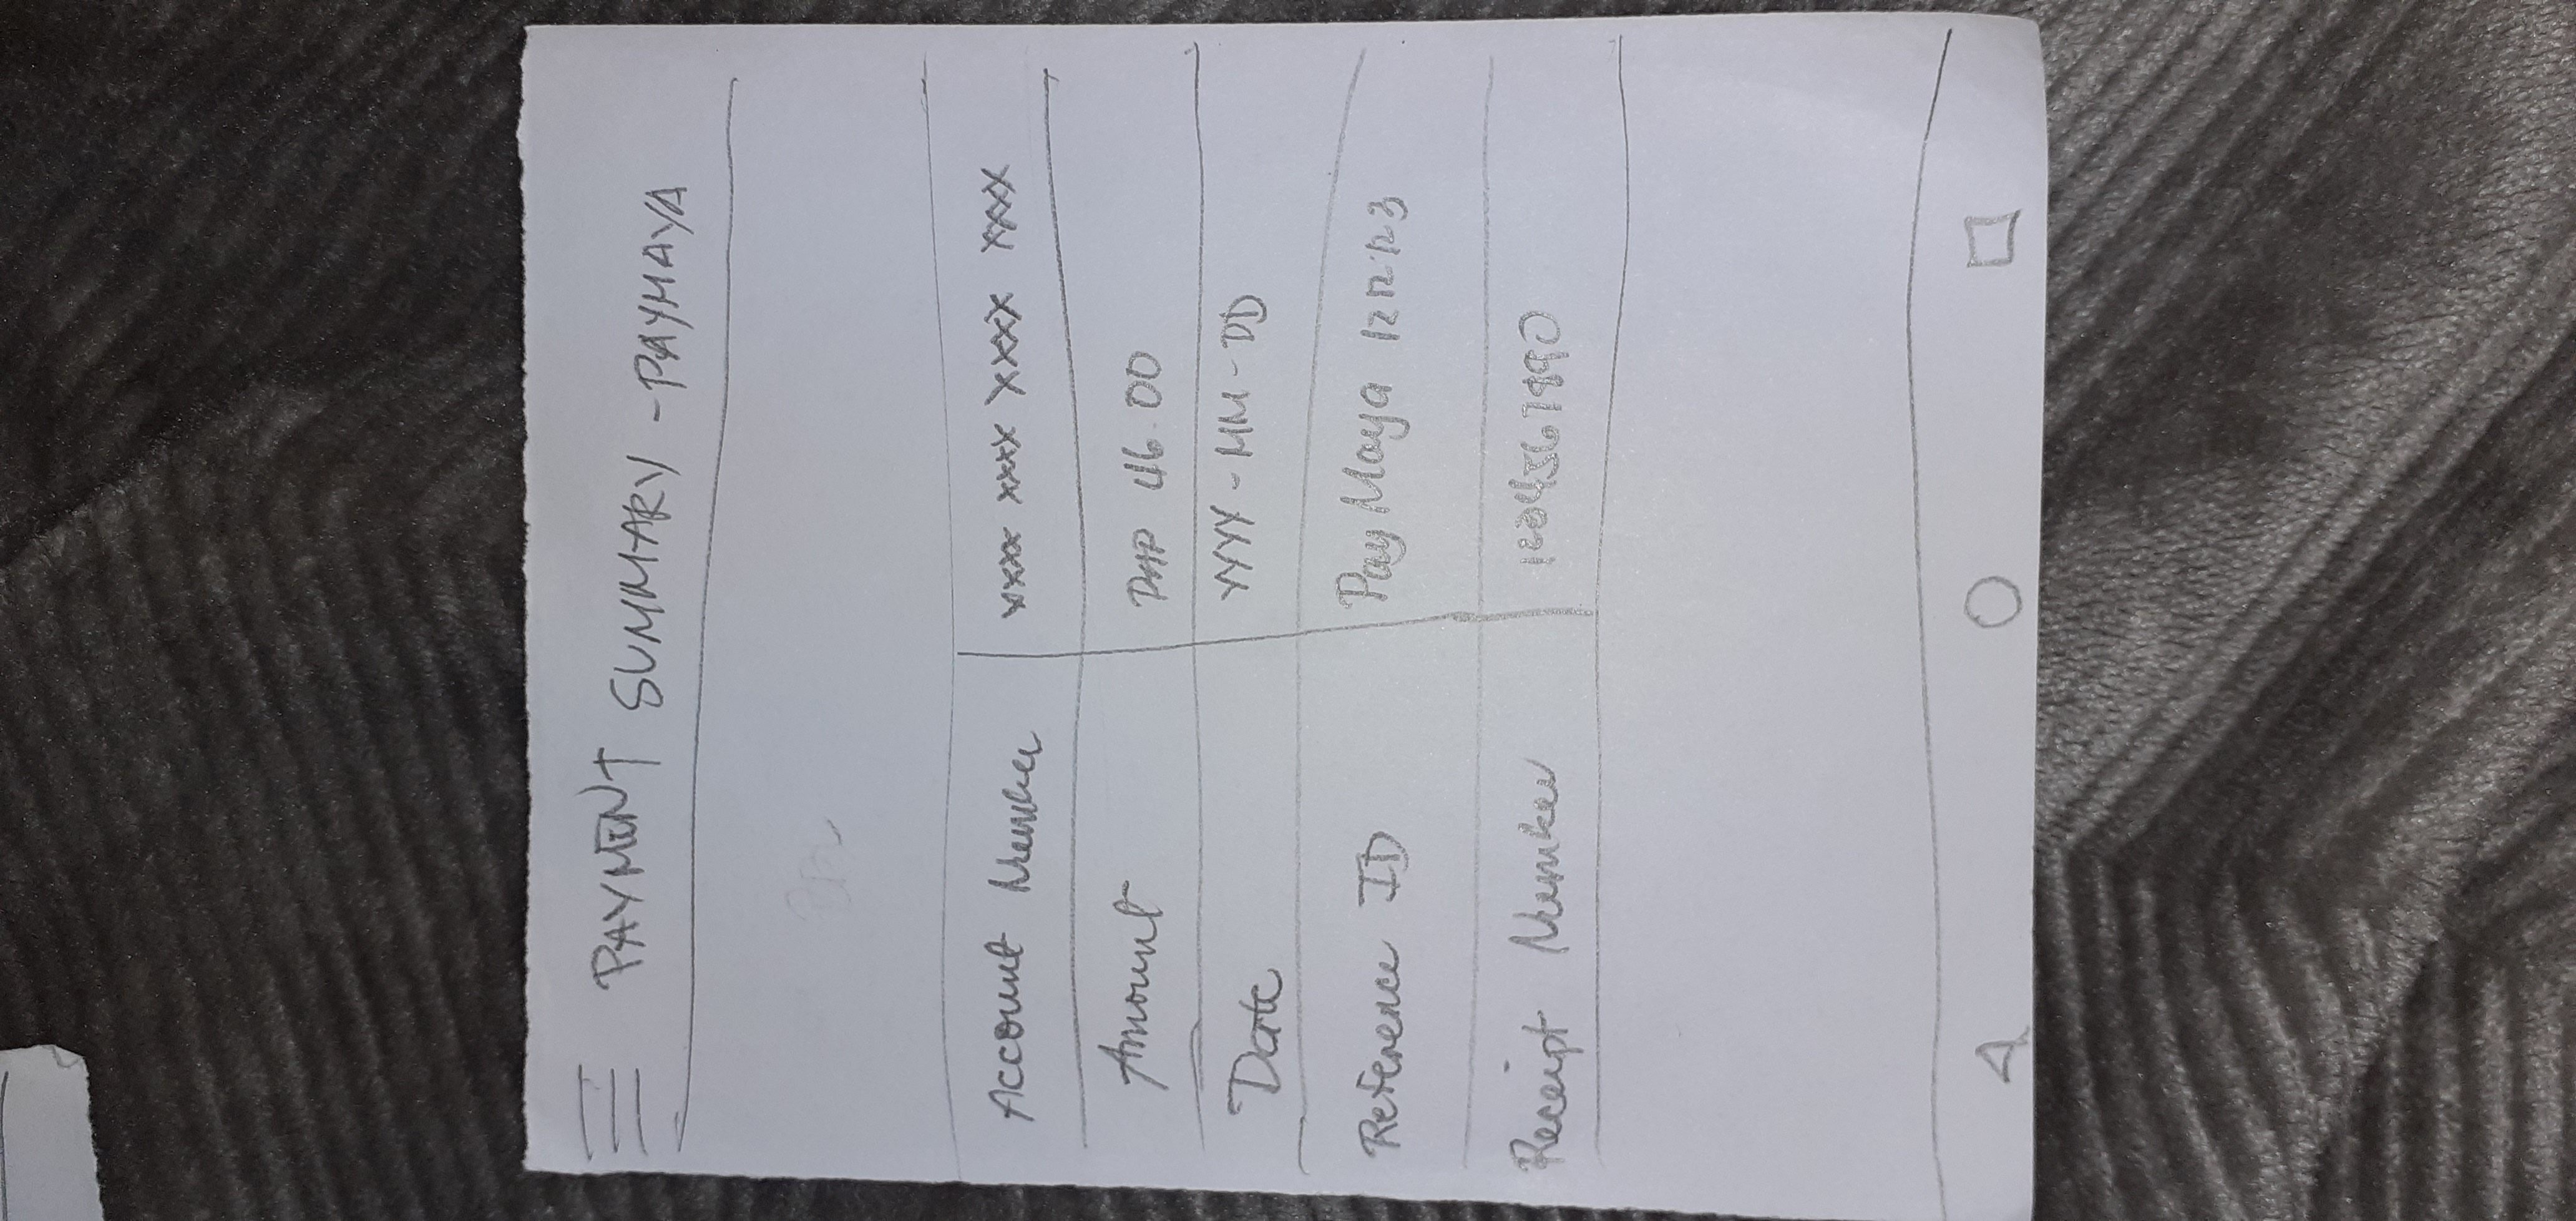 PAYMENT SUMMARY - PAYMAYA
Account Number XXXX XXXX XXXX XXXX
Amount PHP 46.00
Date YYYY - MM - DD
Reference ID PayMaya
Receipt Number 1234567890